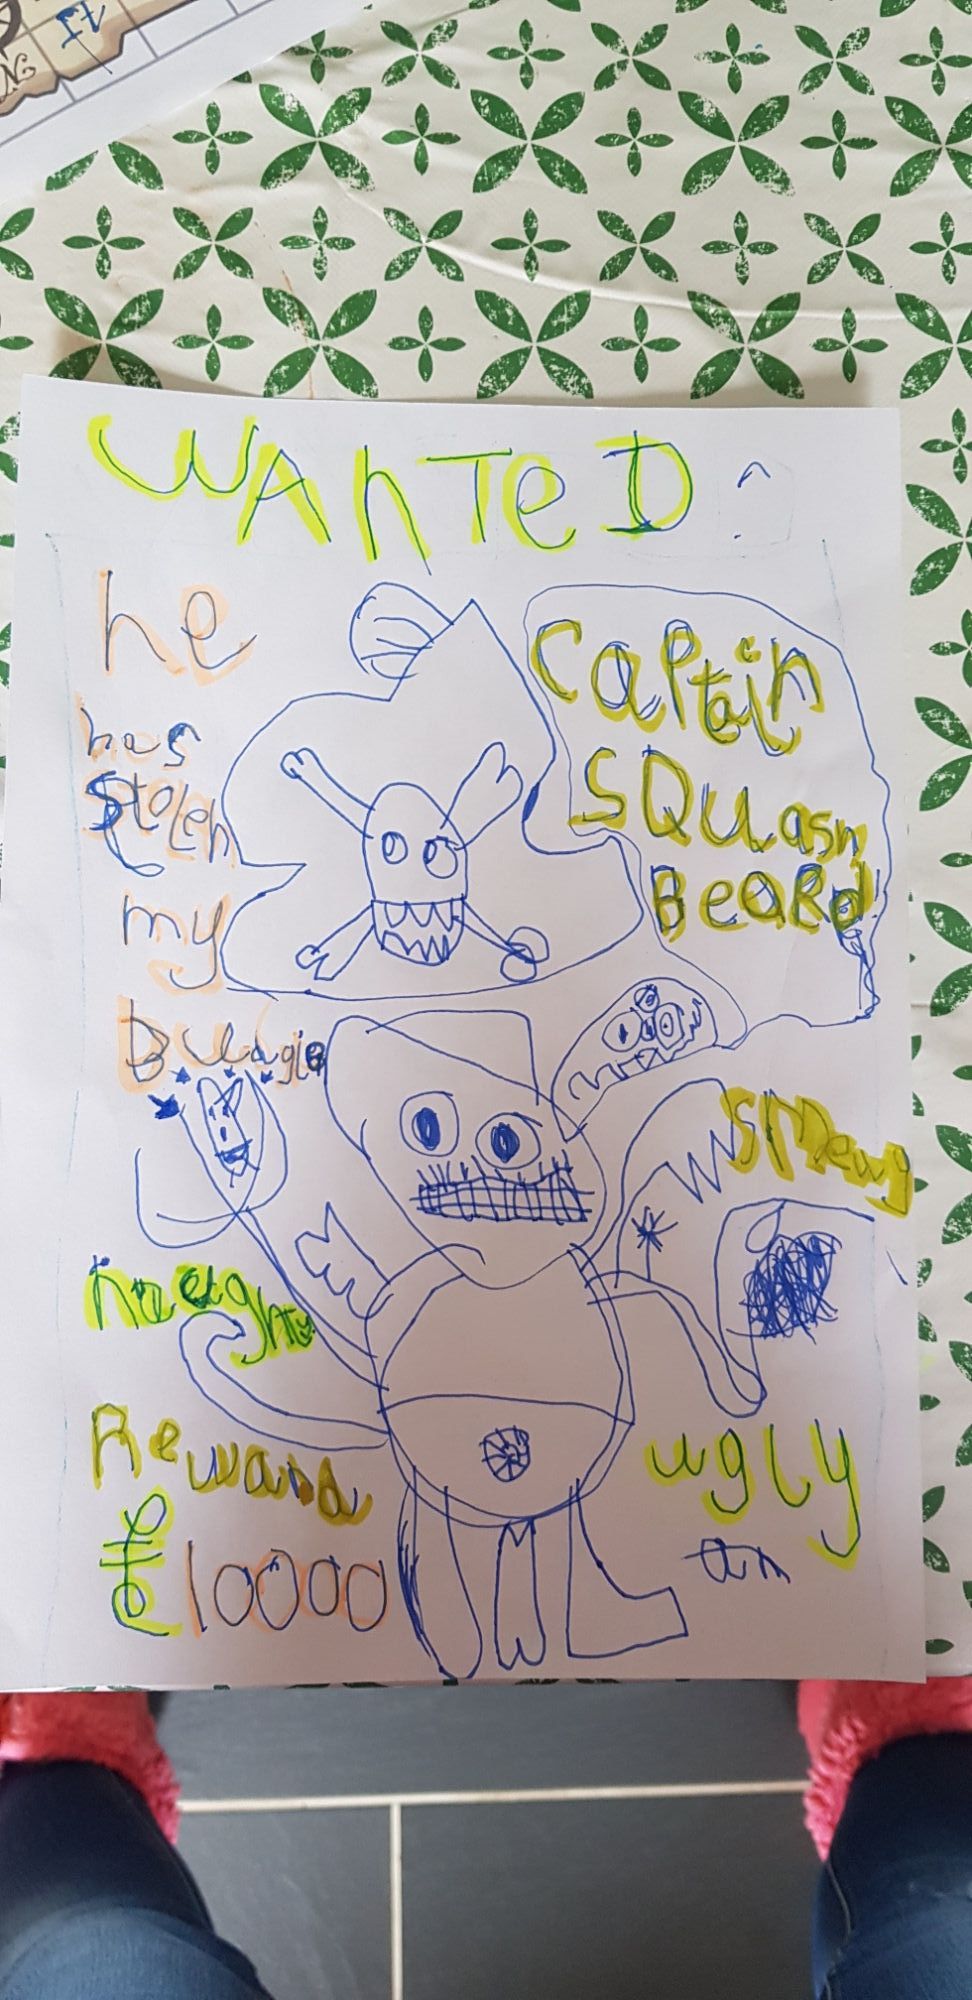 WAnTeD
he
has
stolen
my
Captain
SQuash
BeaRd
smewy
naughty
Reward
£10000
ugly
an